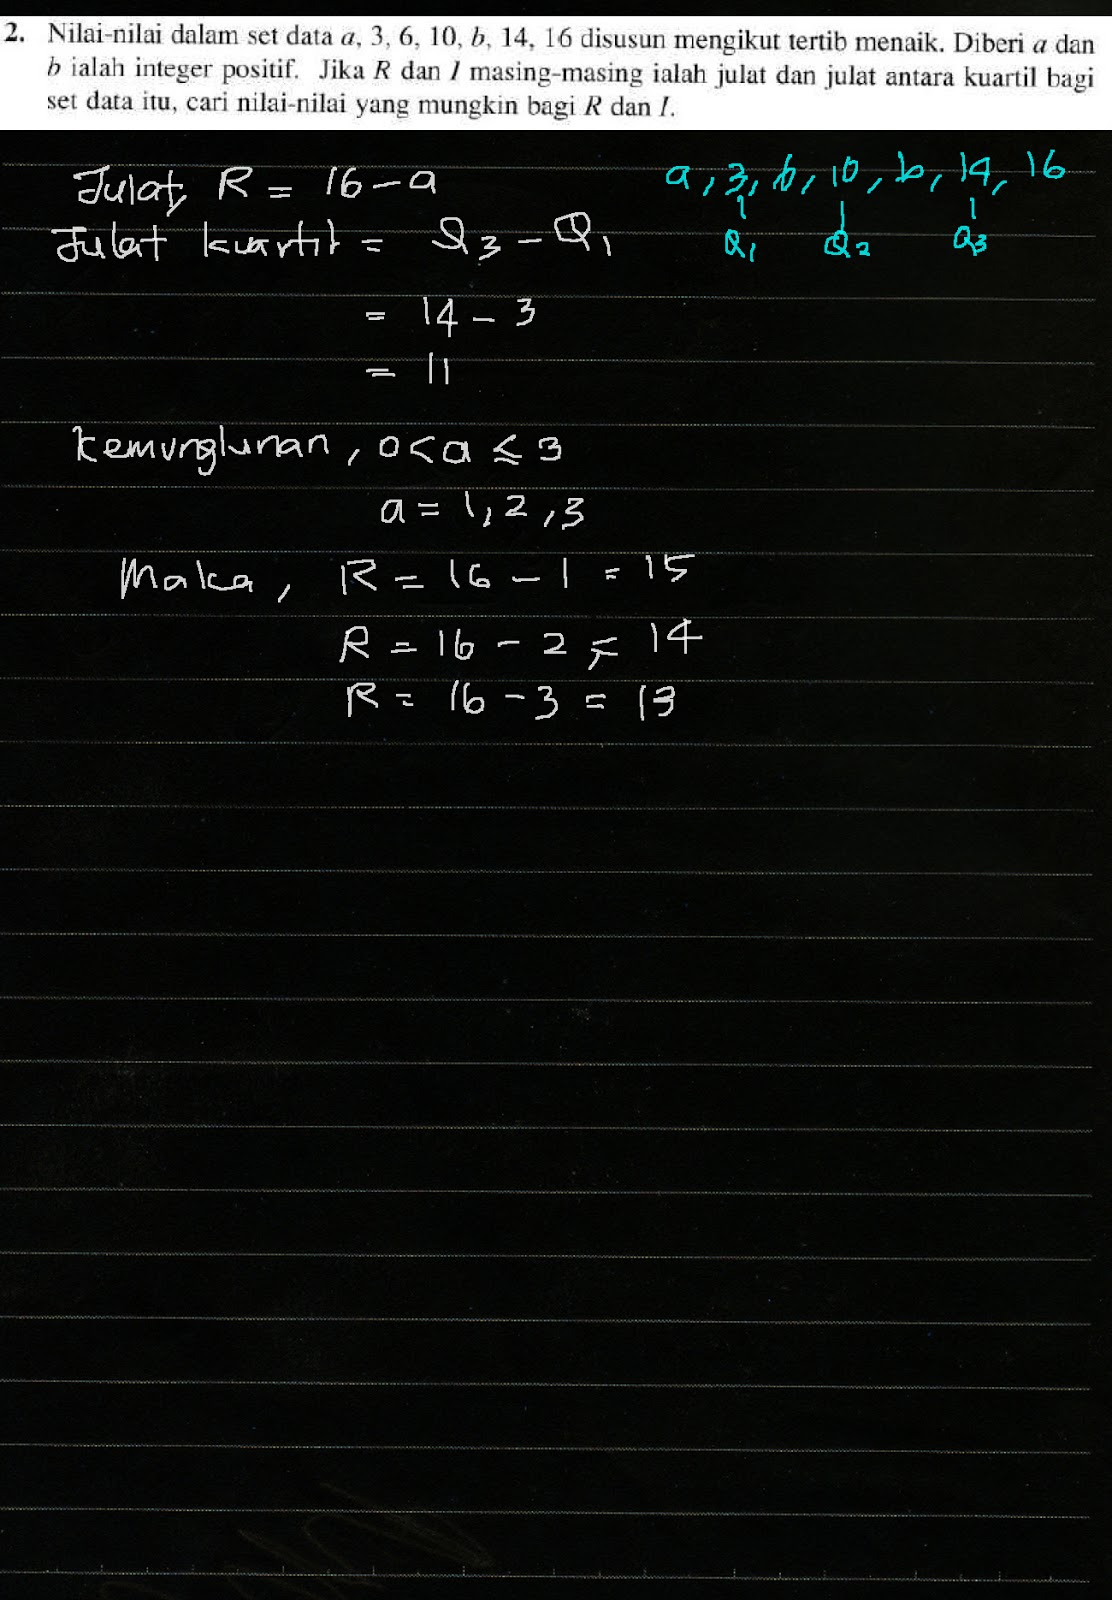 2. Nilai-nilai dalam set data a, 3, 6, 10, b, 14, 16 disusun mengikut tertib menaik. Diberi a dan
b ialah integer positif. Jika R dan I masing-masing ialah julat dan julat antara kuartil bagi
set data itu, cari nilai-nilai yang mungkin bagi R dan I.
Julat, R = 16 - a
a, 3, 6, 10, b, 14, 16
Julat kuartil = Q3 - Q1
Q1 Q2 Q3
= 14 - 3
= 11
Kemungkinan, 0 < a ≤ 3
a = 1, 2, 3
Maka, R = 16 - 1 = 15
R = 16 - 2 = 14
R = 16 - 3 = 13